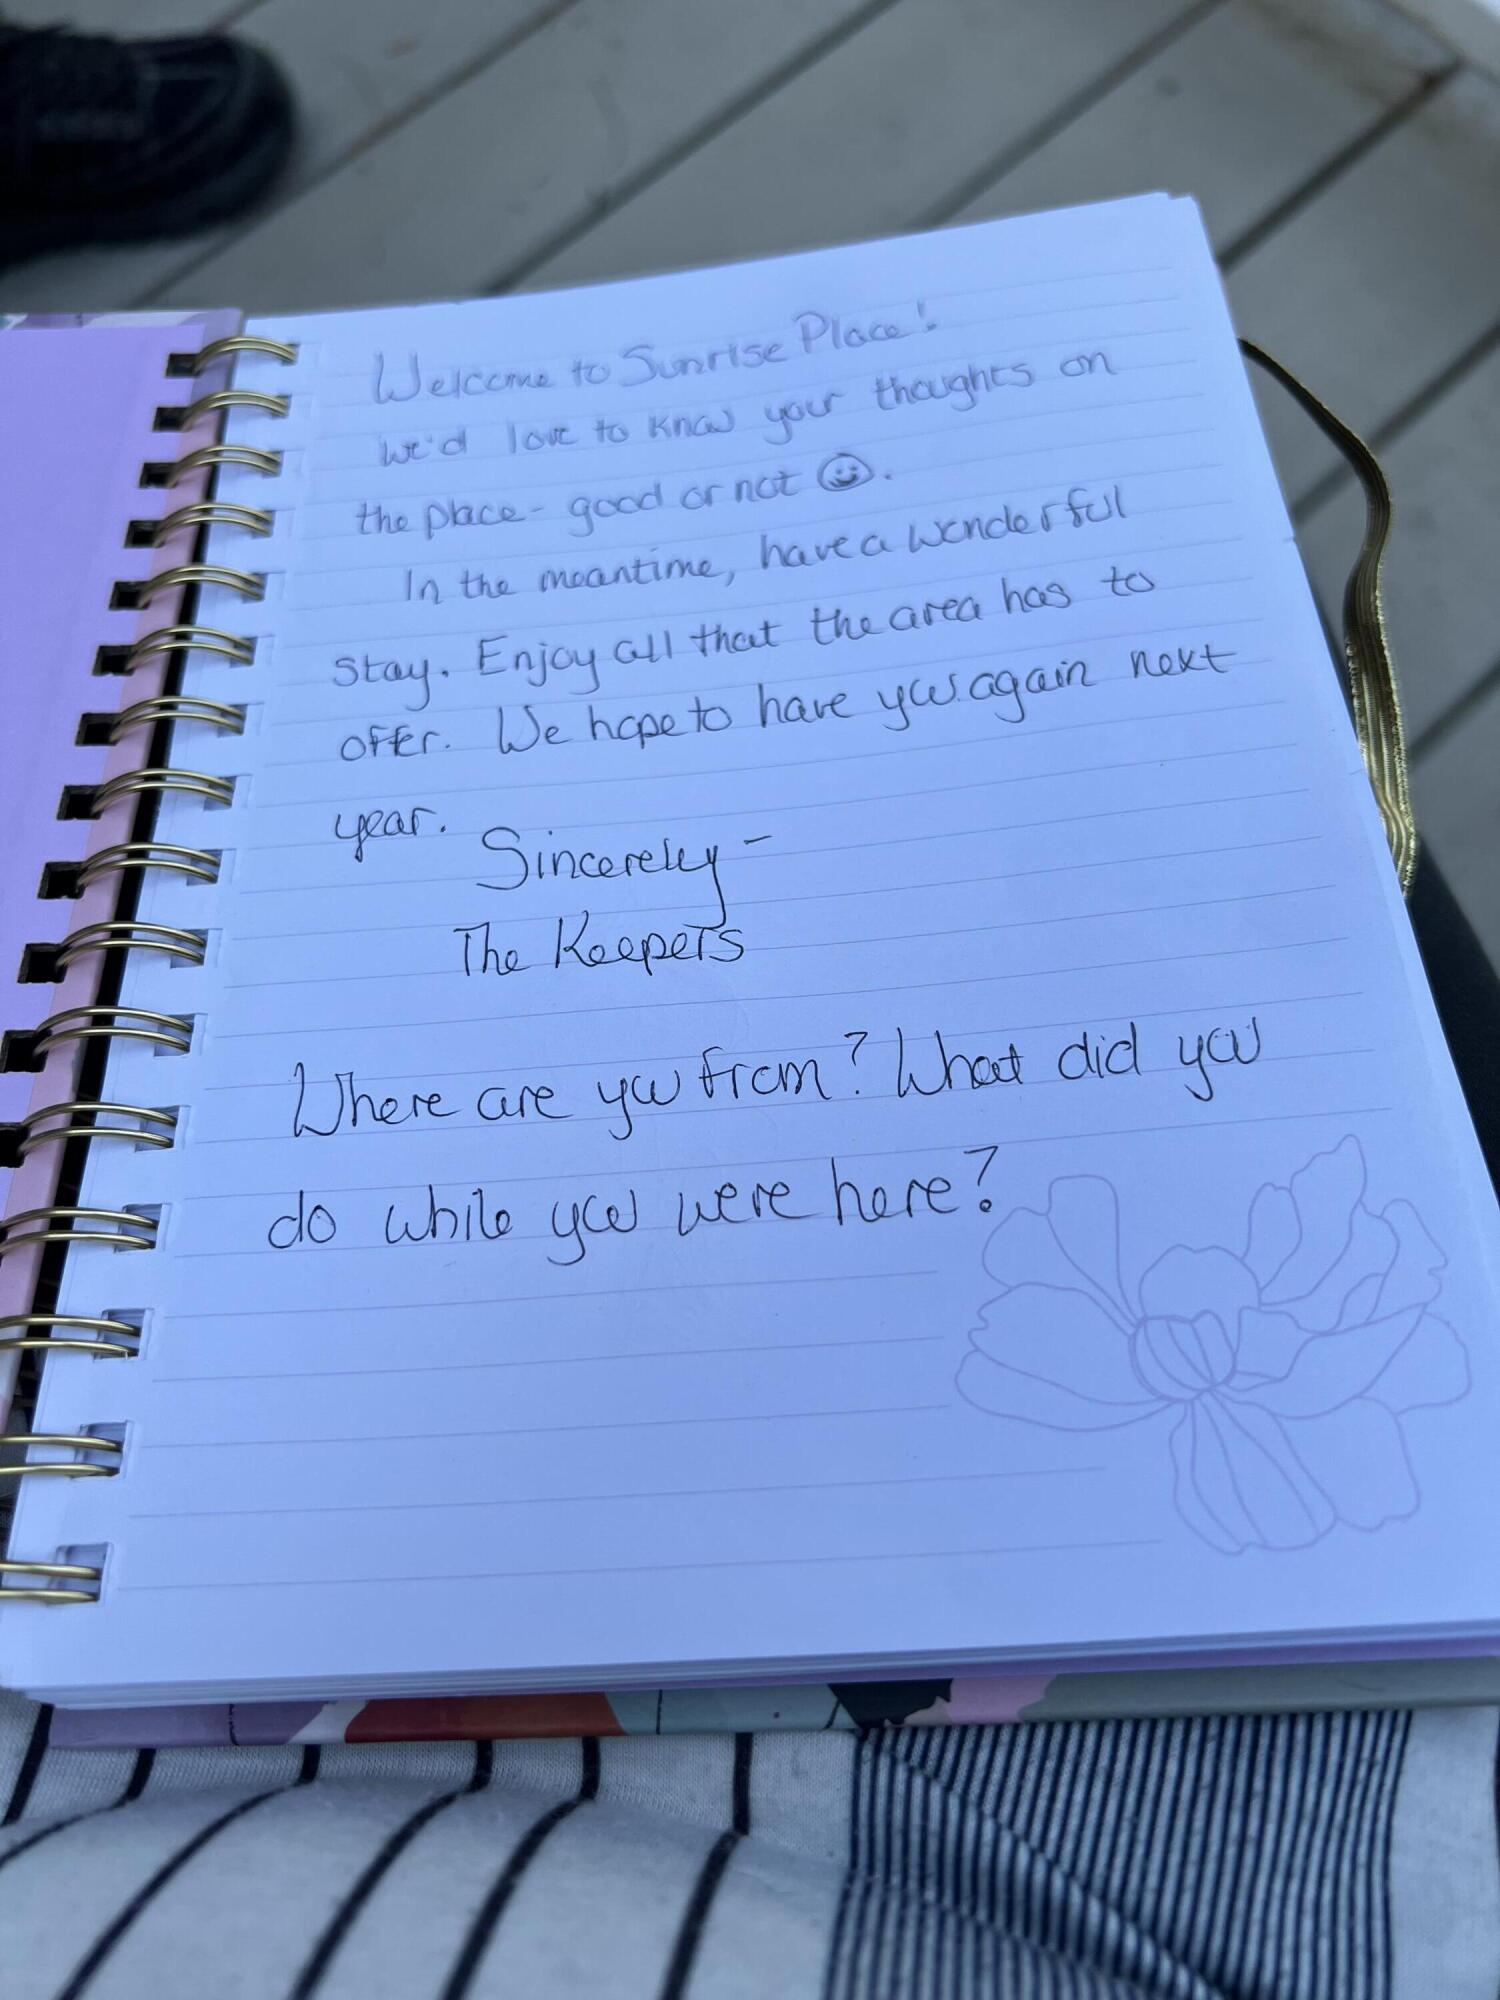 Welcome to Sunrise Place!
We'd love to know your thoughts on
the place - good or not ☺.
In the meantime, have a wonderful
stay. Enjoy all that the area has to
offer. We hope to have you again next
year.
Sincerely -
The Keepers
Where are you from? What did you
do while you were here?